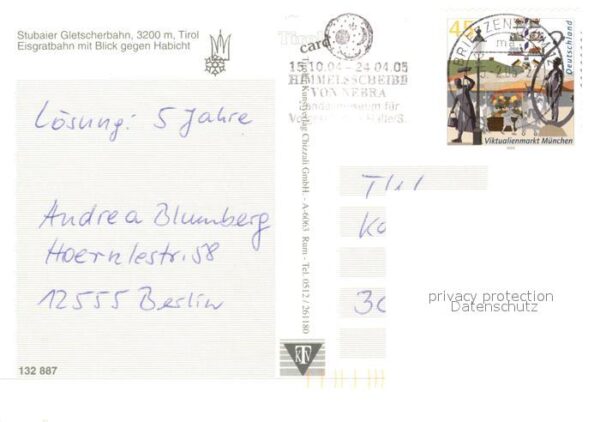 Stubaier Gletscherbahn, 3200 m, Tirol
Eisgratbahn mit Blick gegen Habicht
Lösung: 5 Jahre
Andrea Blumberg
Hoernlestr. 58
12555 Berlin
132 887
Tirol
card
Kunstverlag Chizzali GmbH. - A-6063 Rum - Tel. 0512 / 261180
KTV
15.10.04 - 24.04.05
HIMMELSSCHEIBE
VON NEBRA
Landesmuseum für
BRIEFZENTRUM
45
Deutschland
Viktualienmarkt München
privacy protection
Datenschutz